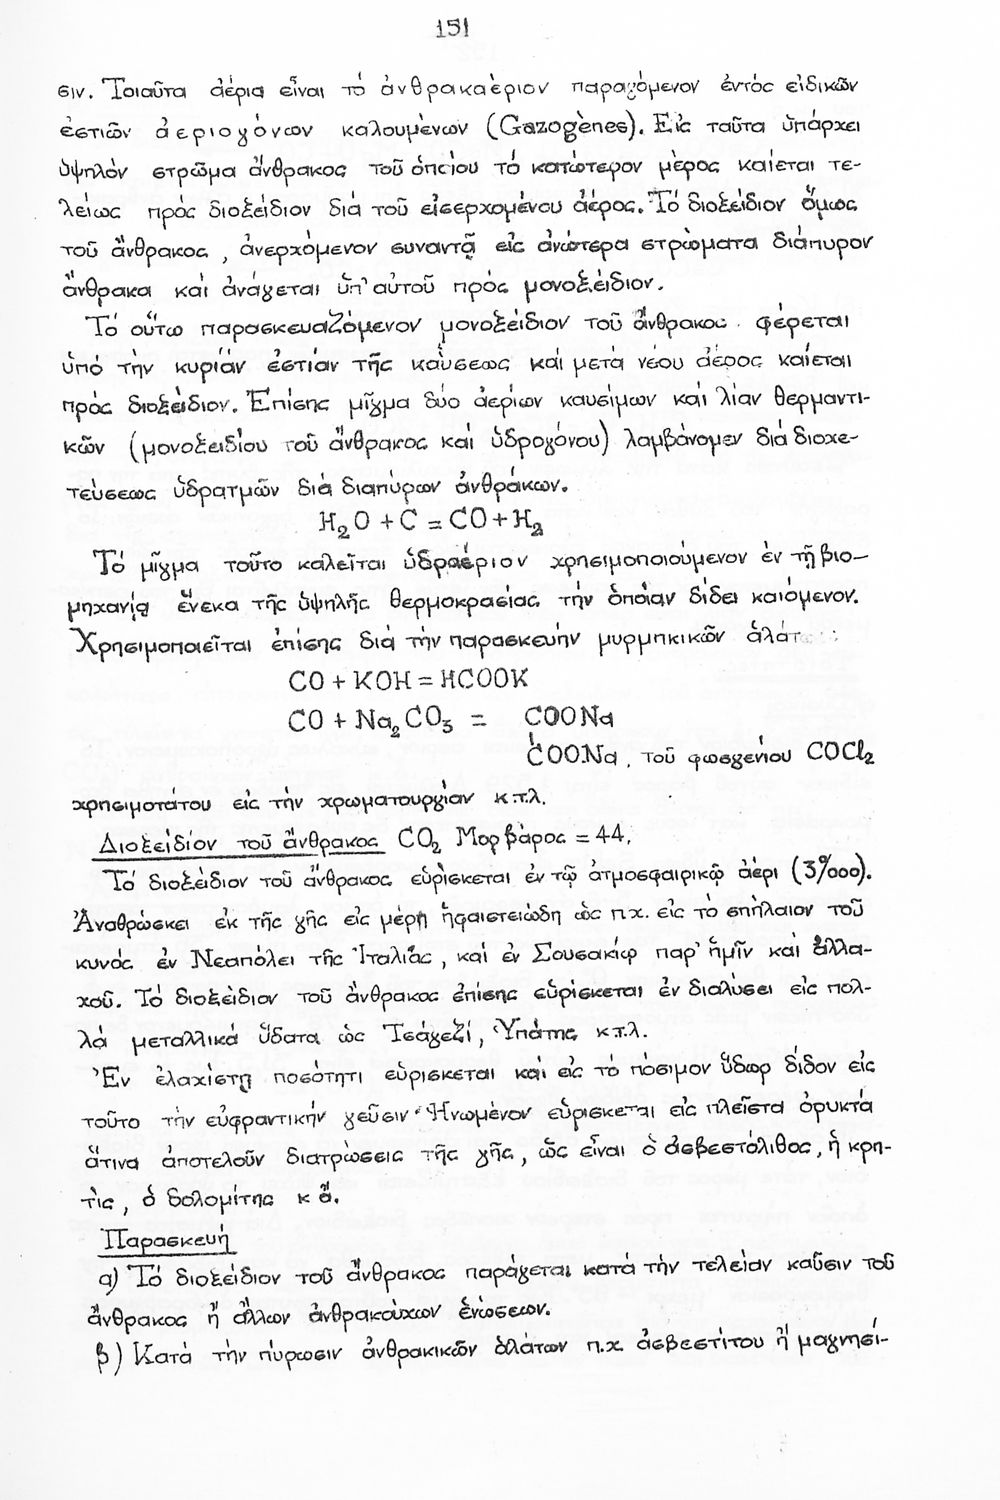 151
σιν. Τοιαῦτα ἀέρια εἶναι τό ἀνθρακαέριον παραγόμενον ἐντός εἰδικῶν
ἑστιῶν ἀεριογόνων καλουμένων (Gazogènes). Εἰς ταῦτα ὑπάρχει
ὑψηλόν στρῶμα ἄνθρακος τοῦ ὁποίου τό κατώτερον μέρος καίεται τε-
λείως πρός διοξείδιον διά τοῦ εἰσερχομένου ἀέρος. Τό διοξείδιον ὅμως
τοῦ ἄνθρακος, ἀνερχόμενον συναντᾷ εἰς ἀνώτερα στρώματα διάπυρον
ἄνθρακα καί ἀνάγεται ὑπ' αὐτοῦ πρός μονοξείδιον.
Τό οὕτω παρασκευαζόμενον μονοξείδιον τοῦ ἄνθρακος φέρεται
ὑπό τήν κυρίαν ἑστίαν τῆς καύσεως καί μετά νέου ἀέρος καίεται
πρός διοξείδιον. Ἐπίσης μῖγμα δύο ἀερίων καυσίμων καί λίαν θερμαντι-
κῶν (μονοξειδίου τοῦ ἄνθρακος καί ὑδρογόνου) λαμβάνομεν διά διοχε-
τεύσεως ὑδρατμῶν διά διαπύρων ἀνθράκων.
H₂O + C = CO + H₂
Τό μῖγμα τοῦτο καλεῖται ὑδραέριον χρησιμοποιούμενον ἐν τῇ βιο-
μηχανίᾳ ἕνεκα τῆς ὑψηλῆς θερμοκρασίας τήν ὁποίαν δίδει καιόμενον.
Χρησιμοποιεῖται ἐπίσης διά τήν παρασκευήν μυρμηκικῶν ἁλάτ
CO + KOH = HCOOK
CO + Na₂CO₃ = COONa
COONa, τοῦ φωσγενίου COCl₂
χρησιμοτάτου εἰς τήν χρωματουργίαν κ.τ.λ.
Διοξείδιον τοῦ ἄνθρακος CO₂ Μορ βάρος = 44.
Τό διοξείδιον τοῦ ἄνθρακος εὑρίσκεται ἐν τῷ ἀτμοσφαιρικῷ ἀέρι (3%000).
Ἀναθρώσκει ἐκ τῆς γῆς εἰς μέρη ἡφαιστειώδη ὡς π.χ. εἰς τό σπήλαιον τοῦ
κυνός ἐν Νεαπόλει τῆς Ἰταλίας, καί ἐν Σουσακίῳ παρ' ἡμῖν καί ἀλλα-
χοῦ. Τό διοξείδιον τοῦ ἄνθρακος ἐπίσης εὑρίσκεται ἐν διαλύσει εἰς πολ-
λά μεταλλικά ὕδατα ὡς Τσάγεζί, Ὑπάτης κ.τ.λ.
Ἐν ἐλαχίστῃ ποσότητι εὑρίσκεται καί εἰς τό πόσιμον ὕδωρ δίδον εἰς
τοῦτο τήν εὐφραντικήν γεῦσιν. Ἡνωμένον εὑρίσκεται εἰς πλεῖστα ὀρυκτά
ἅτινα ἀποτελοῦν διατρώσεις τῆς γῆς, ὡς εἶναι ὁ ἀσβεστόλιθος, ἡ κρη-
τίς, ὁ δολομίτης κ ἄ.
Παρασκευή
α) Τό διοξείδιον τοῦ ἄνθρακος παράγεται κατά τήν τελείαν καῦσιν τοῦ
ἄνθρακος ἤ ἄλλων ἀνθρακούχων ἑνώσεων.
β) Κατά τήν πύρωσιν ἀνθρακικῶν ἁλάτων π.χ. ἀσβεστίτου ἤ μαγνησί-